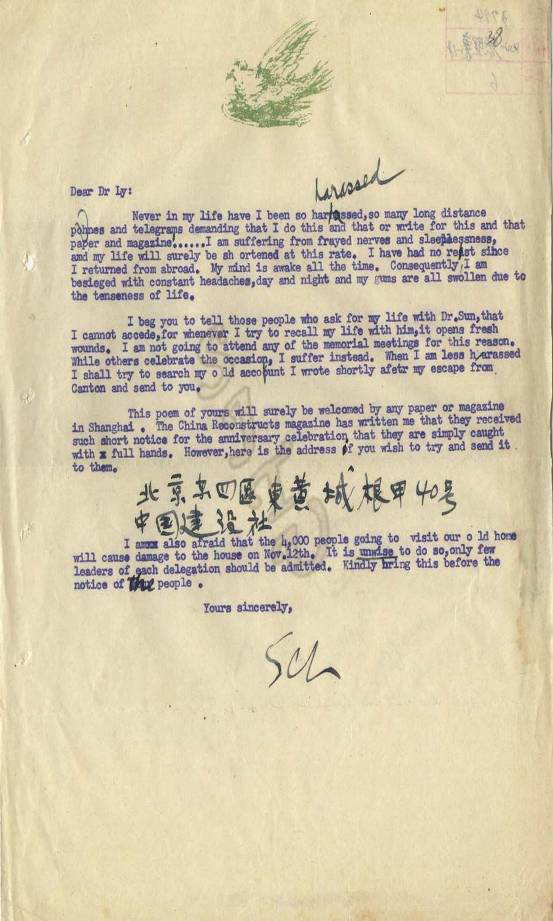 harassed
Dear Dr Ly:
Never in my life have I been so harassed,so many long distance
pohnes and telegrams demanding that I do this and that or write for this and that
paper and magazine......I am suffering from frayed nerves and sleeplessness,
amd my life will surely be sh ortened at this rate. I have had no rest since
I returned from abroad. My mind is awake all the time. Consequently,I am
besieged with constant headaches,day and night and my gums are all swollen due to
the tenseness of life.
I beg you to tell those people who ask for my life with Dr.Sun,that
I cannot accede,for whenever I try to recall my life with him,it opens fresh
wounds. I am not going to attend any of the memorial meetings for this reason.
While others celebrate the occasion, I suffer instead. When I am less harassed
I shall try to search my o ld account I wrote shortly afetr my escape from
Canton and send to you.
This poem of yours will surely be welcomed by any paper or magazine
in Shanghai . The China Reconstructs magazine has written me that they received
such short notice for the anniversary celebration that they are simply caught
with x full hands. However,here is the address if you wish to try and send it
to them.
北京东四區東黄城根甲40号
中国建设社
I amxx also afraid that the 4,000 people going to visit our o ld home
will cause damage to the house on Nov.12th. It is unwise to do so,only few
leaders of each delegation should be admitted. Kindly bring this before the
notice of the people .
Yours sincerely,
SCL